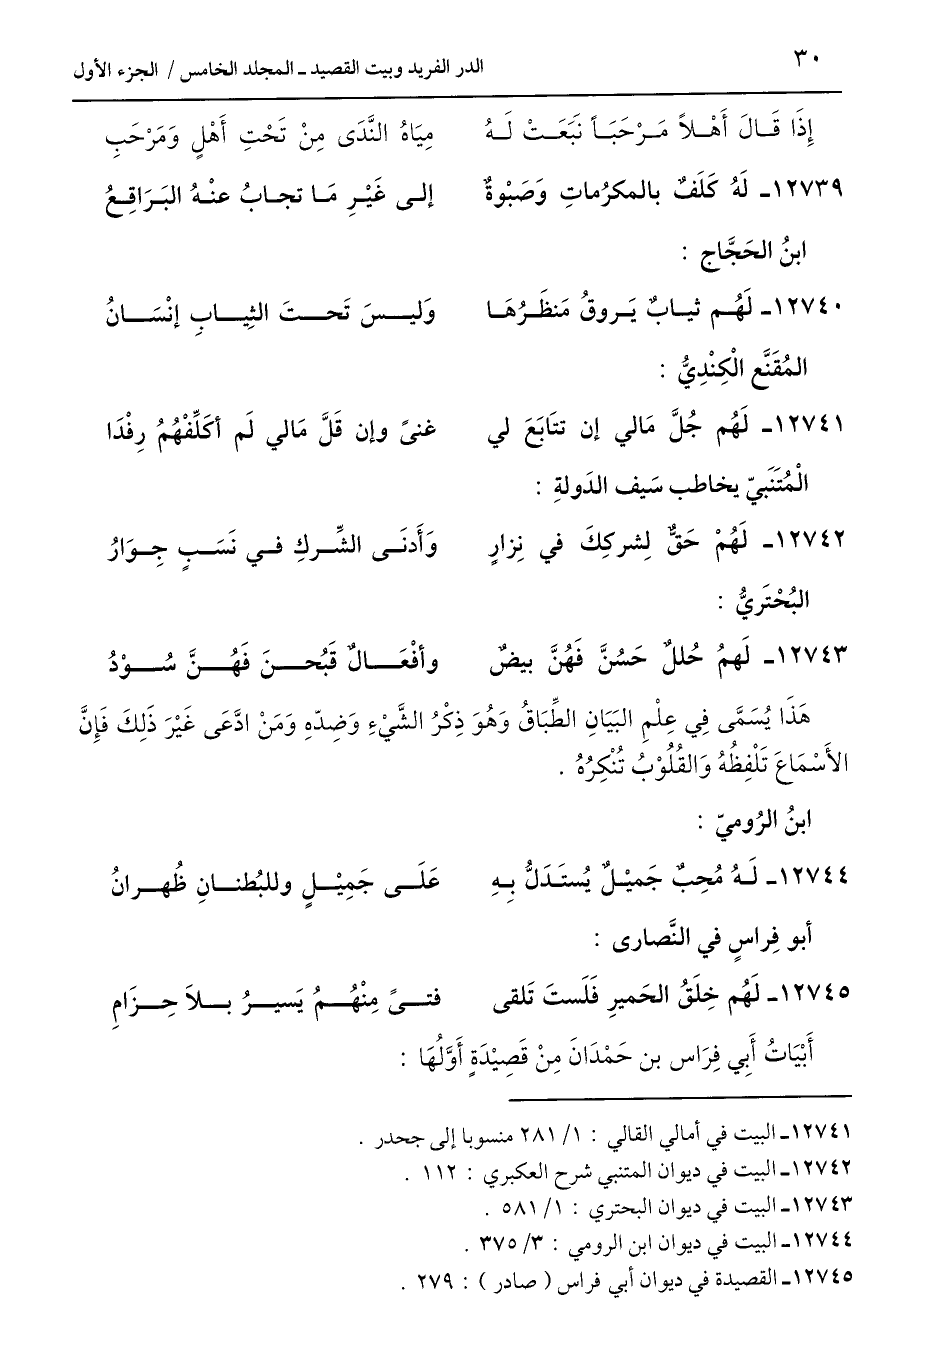 ٣٠
الدر الفريد وبيت القصيد ـ المجلد الخامس / الجزء الأول
إِذَا قَـالَ أَهْـلاً مَـرْحَبَـاً نَبَعَـتْ لَـهُ مِيَاهُ النَّدَى مِنْ تَحْتِ أَهْلٍ وَمَرْحَبِ
١٢٧٣٩ـ لَهُ كَلَفٌ بالمكرُماتِ وَصَبْوةٌ إلـى غَيْرِ مَـا تجـابُ عنْـهُ البَرَاقِـعُ
ابنُ الحَجَّاج :
١٢٧٤٠ـ لَهُـم ثيـابٌ يَـروقُ مَنظَـرُهَـا وَليـــسَ تَحـــتَ الثِيـــابِ إنْسَـــانُ
المُقَنَّع الْكِنْدِيُّ :
١٢٧٤١ـ لَهُم جُلَّ مَالي إن تتَابَعَ لي غنىً وإن قَلَّ مَالي لَم أكَلِّفْهُمُ رِفْدَا
الْمُتَنَبيّ يخاطب سَيف الدَولةِ :
١٢٧٤٢ـ لَهُمْ حَقٌّ لِشركِكَ في نِزارٍ وَأَدنَـى الشِّـركِ فـي نَسَـبٍ جِـوَارُ
البُحْتَريُّ :
١٢٧٤٣ـ لَهمُ حُللٌ حَسُنَّ فَهُنَّ بيضٌ وأفْعَـــالٌ قَبُحـــنَ فَهُـــنَّ سُـــوْدُ
هَذَا يُسَمَّى فِي عِلْمِ البَيَانِ الطِّبَاقُ وَهُوَ ذِكْرُ الشَّيْءِ وَضِدّهِ وَمَنْ ادَّعَى غَيْرَ ذَلِكَ فَإِنَّ
الأَسْمَاعَ تَلْفِظُهُ وَالقُلُوْبُ تُنْكِرُهُ .
ابنُ الرُوميّ :
١٢٧٤٤ـ لَـهُ مُحِبٌ جَميْـلٌ يُستَدَلُّ بـهِ عَلَـى جَمِيْـلٍ وللبُطنـانِ ظُهـرانُ
أبو فِراسٍ في النَّصارى :
١٢٧٤٥ـ لَهُم خِلَقُ الحَميرِ فَلَستَ تَلقى فتـىً مِنْهُـمُ يَسيـرُ بـلاَ حِـزَامِ
أَبْيَاتُ أَبِي فِرَاس بن حَمْدَانَ مِنْ قَصِيْدَةٍ أَوَّلُهَا :
١٢٧٤١ـ البيت في أمالي القالي : ١/ ٢٨١ منسوبا إلى جحدر .
١٢٧٤٢ـ البيت في ديوان المتنبي شرح العكبري : ١١٢ .
١٢٧٤٣ـ البيت في ديوان البحتري : ١/ ٥٨١ .
١٢٧٤٤ـ البيت في ديوان ابن الرومي : ٣/ ٣٧٥ .
١٢٧٤٥ـ القصيدة في ديوان أبي فراس ( صادر ) : ٢٧٩ .